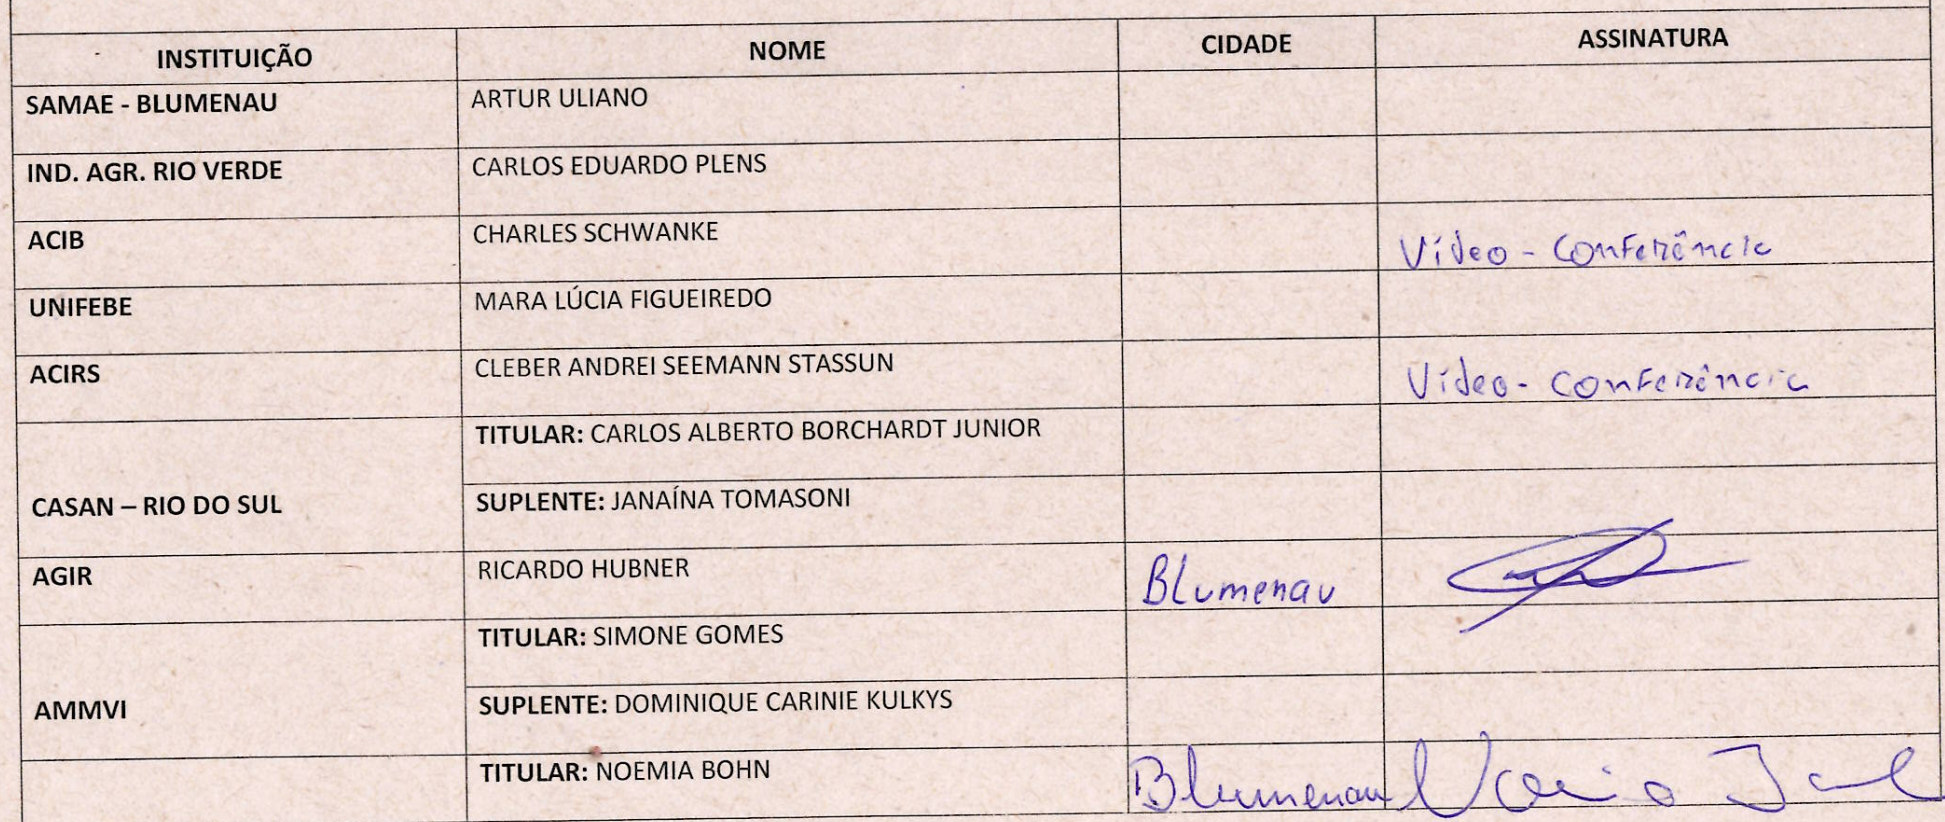 INSTITUIÇÃO NOME CIDADE ASSINATURA
SAMAE - BLUMENAU ARTUR ULIANO
IND. AGR. RIO VERDE CARLOS EDUARDO PLENS
ACIB CHARLES SCHWANKE Vídeo - Conferência
UNIFEBE MARA LÚCIA FIGUEIREDO
ACIRS CLEBER ANDREI SEEMANN STASSUN Vídeo - Conferência
TITULAR: CARLOS ALBERTO BORCHARDT JUNIOR
CASAN – RIO DO SUL SUPLENTE: JANAÍNA TOMASONI
AGIR RICARDO HUBNER Blumenau
TITULAR: SIMONE GOMES
AMMVI SUPLENTE: DOMINIQUE CARINIE KULKYS
TITULAR: NOEMIA BOHN Blumenau